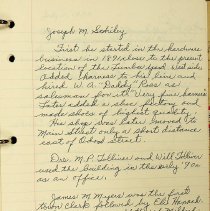 Joseph M. 
First he started in the hardware
business in 1891 close to the present
location of the lumber yard west side
Added harness to his line and
hired W. A. "Daddy" Ross as
salesman from the Very fine harness
Later added a shoe factory and
made shoes of highest quality.
His shop was later moved to
Main Street only a short distance
east of Odood Street.
Drs. M. P. Tillines and Will Tilliner
used the building in the early '90s
as an office.
James M Myers was the first
town clerk followed by Eli Hosack